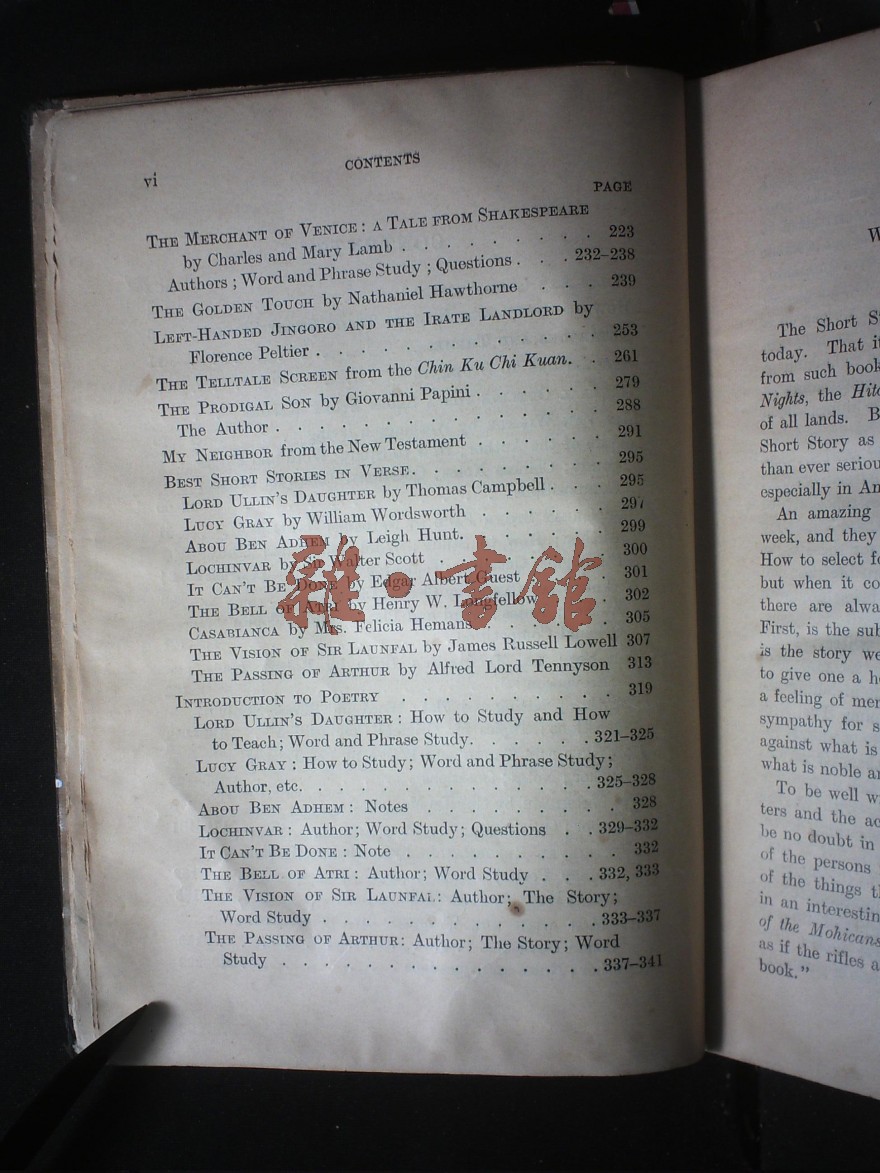 vi
CONTENTS
PAGE
THE MERCHANT OF VENICE: A TALE FROM SHAKESPEARE
by Charles and Mary Lamb . . . . . . . . . 223
Authors; Word and Phrase Study; Questions . . . 232–238
THE GOLDEN TOUCH by Nathaniel Hawthorne . . . 239
LEFT-HANDED JINGORO AND THE IRATE LANDLORD by
Florence Peltier . . . . . . . . . . . . 253
THE TELLTALE SCREEN from the Chin Ku Chi Kuan. . 261
THE PRODIGAL SON by Giovanni Papini . . . . . . 279
The Author . . . . . . . . . . . . . . 288
MY NEIGHBOR from the New Testament . . . . . . 291
BEST SHORT STORIES IN VERSE. . . . . . . . . 295
LORD ULLIN'S DAUGHTER by Thomas Campbell . . . 295
LUCY GRAY by William Wordsworth . . . . . . 297
ABOU BEN ADHEM by Leigh Hunt. . . . . . . 299
LOCHINVAR by Sir Walter Scott . . . . . . . 300
IT CAN'T BE DONE by Edgar Albert Guest . . . 301
THE BELL OF ATRI by Henry W. Longfellow . . . 302
CASABIANCA by Mrs. Felicia Hemans . . . . . . 305
THE VISION OF SIR LAUNFAL by James Russell Lowell 307
THE PASSING OF ARTHUR by Alfred Lord Tennyson 313
INTRODUCTION TO POETRY . . . . . . . . . . 319
LORD ULLIN'S DAUGHTER: How to Study and How
to Teach; Word and Phrase Study. . . . . . 321–325
LUCY GRAY: How to Study; Word and Phrase Study;
Author, etc. . . . . . . . . . . . . . 325–328
ABOU BEN ADHEM: Notes . . . . . . . . . 328
LOCHINVAR: Author; Word Study; Questions . . 329–332
IT CAN'T BE DONE: Note . . . . . . . . . . 332
THE BELL OF ATRI: Author; Word Study . . . 332, 333
THE VISION OF SIR LAUNFAL: Author; The Story;
Word Study . . . . . . . . . . . . 333–337
THE PASSING OF ARTHUR: Author; The Story; Word
Study . . . . . . . . . . . . . . 337–341
雜·書館
W
The Short
today. That it
from such book
Nights, the
of all lands.
Short Story as
than ever seriou
especially in An
An amazing
week, and they
How to select
but when it co
there are alwa
First, is the sub
is the story we
to give one a
a feeling of mer
sympathy for s
against what is
what is noble
To be well w
ters and the ac
be no doubt in
of the persons
of the things
in an interestin
of the Mohicans
as if the rifles a
book."